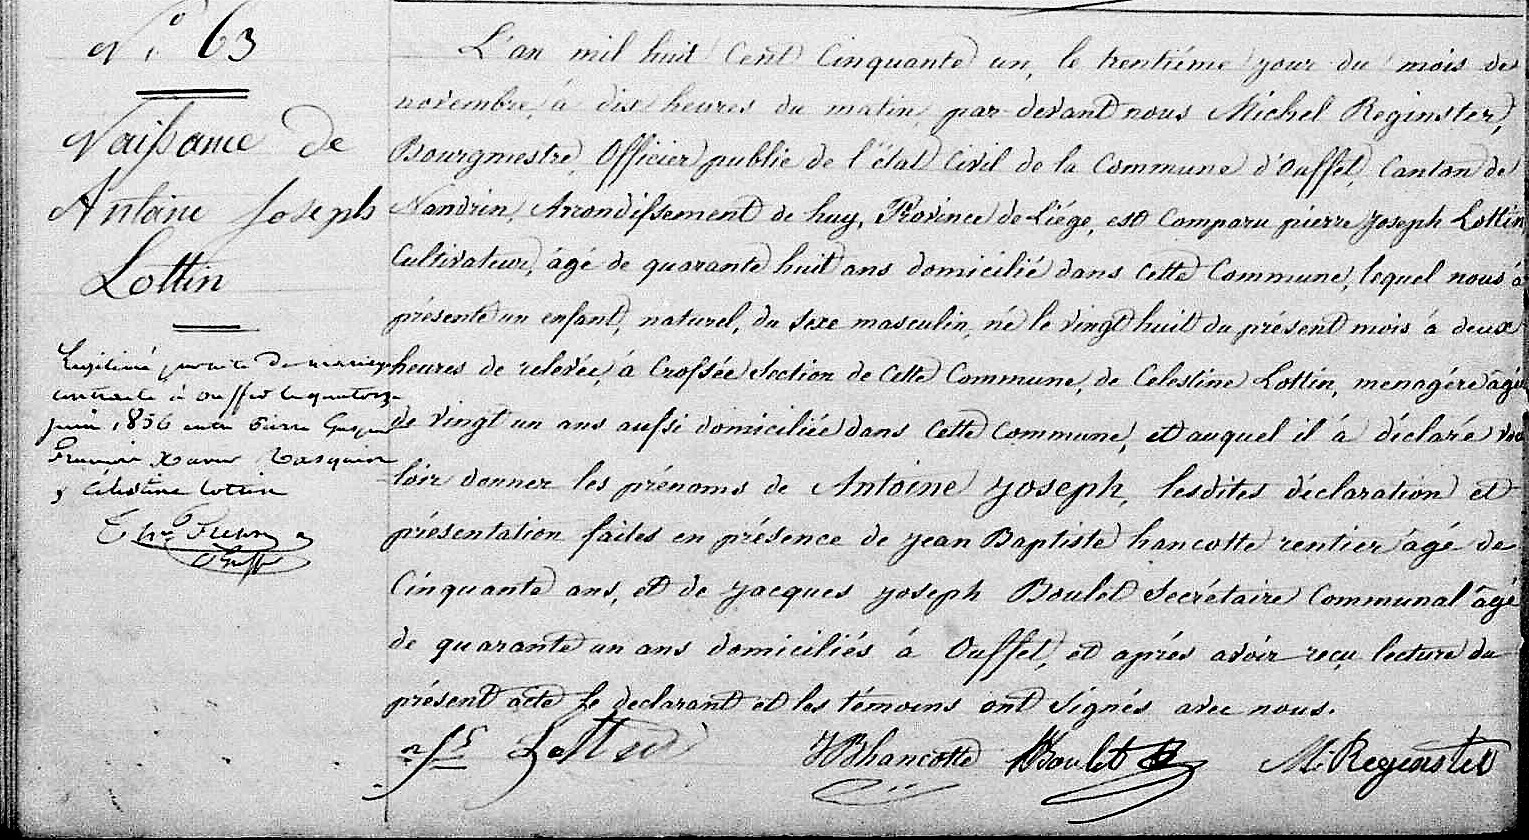 N° 63
Naissance de
Antoine Joseph
Lottin
Legitimé par acte de mariage
contracté à ouffet le quatorze
juin 1856 entre Pierre
François Xavier
& Célestine Lottin
L'an mil huit Cent Cinquante un, le trentiéme jour du mois de
novembre, à dix heures du matin, par devant nous Michel Reginster,
Bourgmestre, Officier public de l'état Civil de la Commune d'Ouffet, Canton de
Nandrin, Arrondissement de huy, Province de Liége, est Comparu pierre Joseph Lottin
Cultivateur, âgé de quarante huit ans domicilié dans Cette Commune, lequel nous à
présenté un enfant, naturel, du sexe masculin, né le vingt huit du présent mois à deux
heures de relevée, à Crossée Section de Cette Commune, de Celestine Lottin, menagére âgée
de Vingt un ans aussi domiciliée dans Cette Commune, et auquel il à déclaré vou
loir donner les prénoms de Antoine Joseph, lesdites déclaration et
présentation faites en présence de Jean Baptiste hancotte rentier âgé de
Cinquante ans, et de Jacques Joseph Boulet Secrétaire Communal âgé
de quarante un ans domiciliés à Ouffet, et aprés avoir reçu lecture du
présent acte le declarant et les témoins ont Signés avec nous.
Lottin JBhancotte Boulet M. Reginster